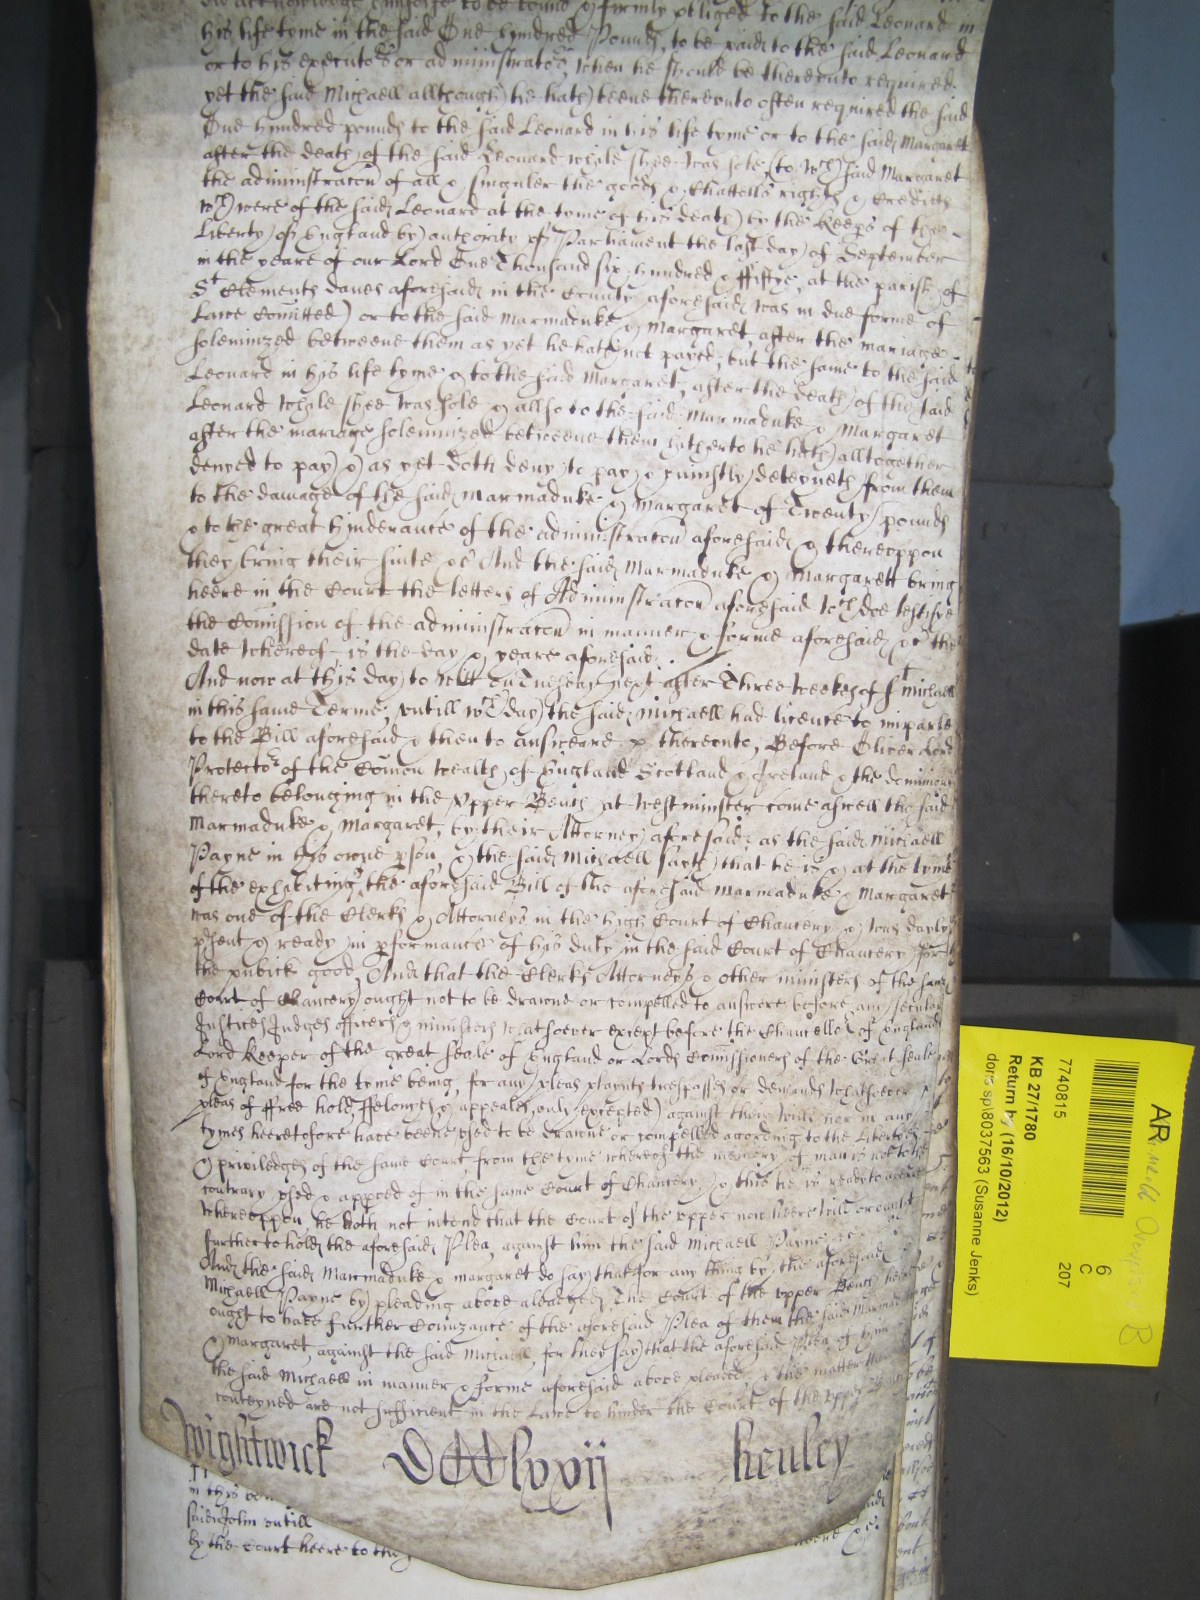 did acknowledge himselfe to be bound & firmly obliged to the said Leonard in
his life tyme in the said One hundred Pounds, to be paid to the said Leonard
or to his executors or administrators, when he should be thereunto required,
yet the said Michaell allthough he hath beene thereunto often required the said
One hundred pounds to the said Leonard in his life tyme or to the said Margaret
after the death of the said Leonard while shee was sole (to wch said Margaret
the administracon of all & singuler the goods & Chattells rights & Credits
wch were of the said Leonard at the tyme of his death by the Keeps of the
Liberty of England by authority of Parliament the last day of September
in the yeare of our Lord One Thousand six hundred & fiftye, at the parish of
St Clements danes aforesaid in the County aforesaid was in due forme of
Lawe Comitted) or to the said Marmaduke & Margaret, after the mariage
solemnized betweene them as yet he hath not payed, but the same to the said
Leonard in his life tyme & to the said Margaret, after the death of the said
Leonard while shee was sole & allso to the said Marmaduke & Margaret
after the mariage solemnized betweene them hitherto he hath alltogether
denyed to pay & as yet doth deny to pay & uniustly deteyneth from them
to the damage of the said Marmaduke & Margaret of Twenty pounds
& to the great hinderance of the administracon aforesaid & thereuppon
they bring their suite &c And the said Marmaduke & Margarett bring
heere in the Court the letters of Administracon aforesaid wch doe testifye
the Comission of the administracon in manner & forme aforesaid &c the
date whereof is the day & yeare aforesaid.
And now at this day to witt on Tuesday next after Three weekes of St Michaell
in this same Terme, untill wch day the said Michaell had licence to imparle
to the Bill aforesaid & then to answeare & thereunto, Before Oliver Lord
Protector of the Comon wealth of England Scotland & Ireland & the dominions
thereto belonging in the Upper Bench at Westminster come aswell the said
Marmaduke & Margaret, by their Attorney aforesaid, as the said Michaell
Payne in his owne pson, & the said Michaell sayth that he is & at the tyme
of the exhibiting the aforesaid Bill of the aforesaid Marmaduke & Margaret
was one of the Clerks & Attorneys in the high Court of Chancery & was dayly
psent & ready in pformance of his duty in the said Court of Chancery for
the publick good, And that the Clerks Attorneys & other ministers of the same
Court of Chancery ought not to be drawne or compelled to answere before any secular
Justices Judges officers & ministers whatsoever except before the Chancellor of England
Lord Keeper of the great seale of England or Lords Comissioners of the Great seale
of England for the tyme being, for any pleas playnts trespasses or demands whatsoever
pleas of free hold, ffelonyes & appeales, only excepted against their will nor in any
tymes heeretofore have beene used to be drawne or compelled according to the Liberties
& priviledges of the same Court from the tyme whereof the memory of man is not to the
contrary used & approved of in the same Court of Chancery, & this he is ready to averre
whereuppon he doth not intend that the Court of the upper now heere will or ought
further to hold the aforesaid Plea, against him the said Michaell Payne &c
And the said Marmaduke & Margaret do say that for any thing by the aforesaid
Michaell Payne by pleading above aleadged, The Court of the upper Bench heere
ought to have further Conuzance of the aforesaid Plea of them the said Marmaduke
& Margaret, against the said Michaell, for they say that the aforesaid Plea of him
the said Michaell in manner & forme aforesaid above pleaded & the matter therein
conteyned are not sufficient in the Lawe to hinder the Court of the upper Bench
Wightwick DCCCCClxxij henley
in this
said John untill
by the Court heere to the heere &c.
AR
6
C
207
7740815
KB 27/1780
Return by (16/10/2012)
doris sp\8037563 (Susanne Jenks)